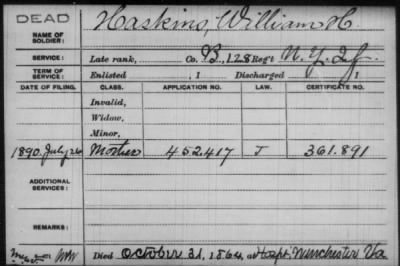 DEAD
NAME OF SOLDIER:
Haskins, William H.
SERVICE:
Late rank, Co. B, 128 Reg't N. Y. Inf.
TERM OF SERVICE:
Enlisted , 1 Discharged , 1
DATE OF FILING. CLASS. APPLICATION NO. LAW. CERTIFICATE NO.
Invalid,
Widow,
Minor,
1890. July 24 Mother 452.417 J 361.891
ADDITIONAL SERVICES:
REMARKS:
Died October 31, 1864, at Hosp. Winchester Va